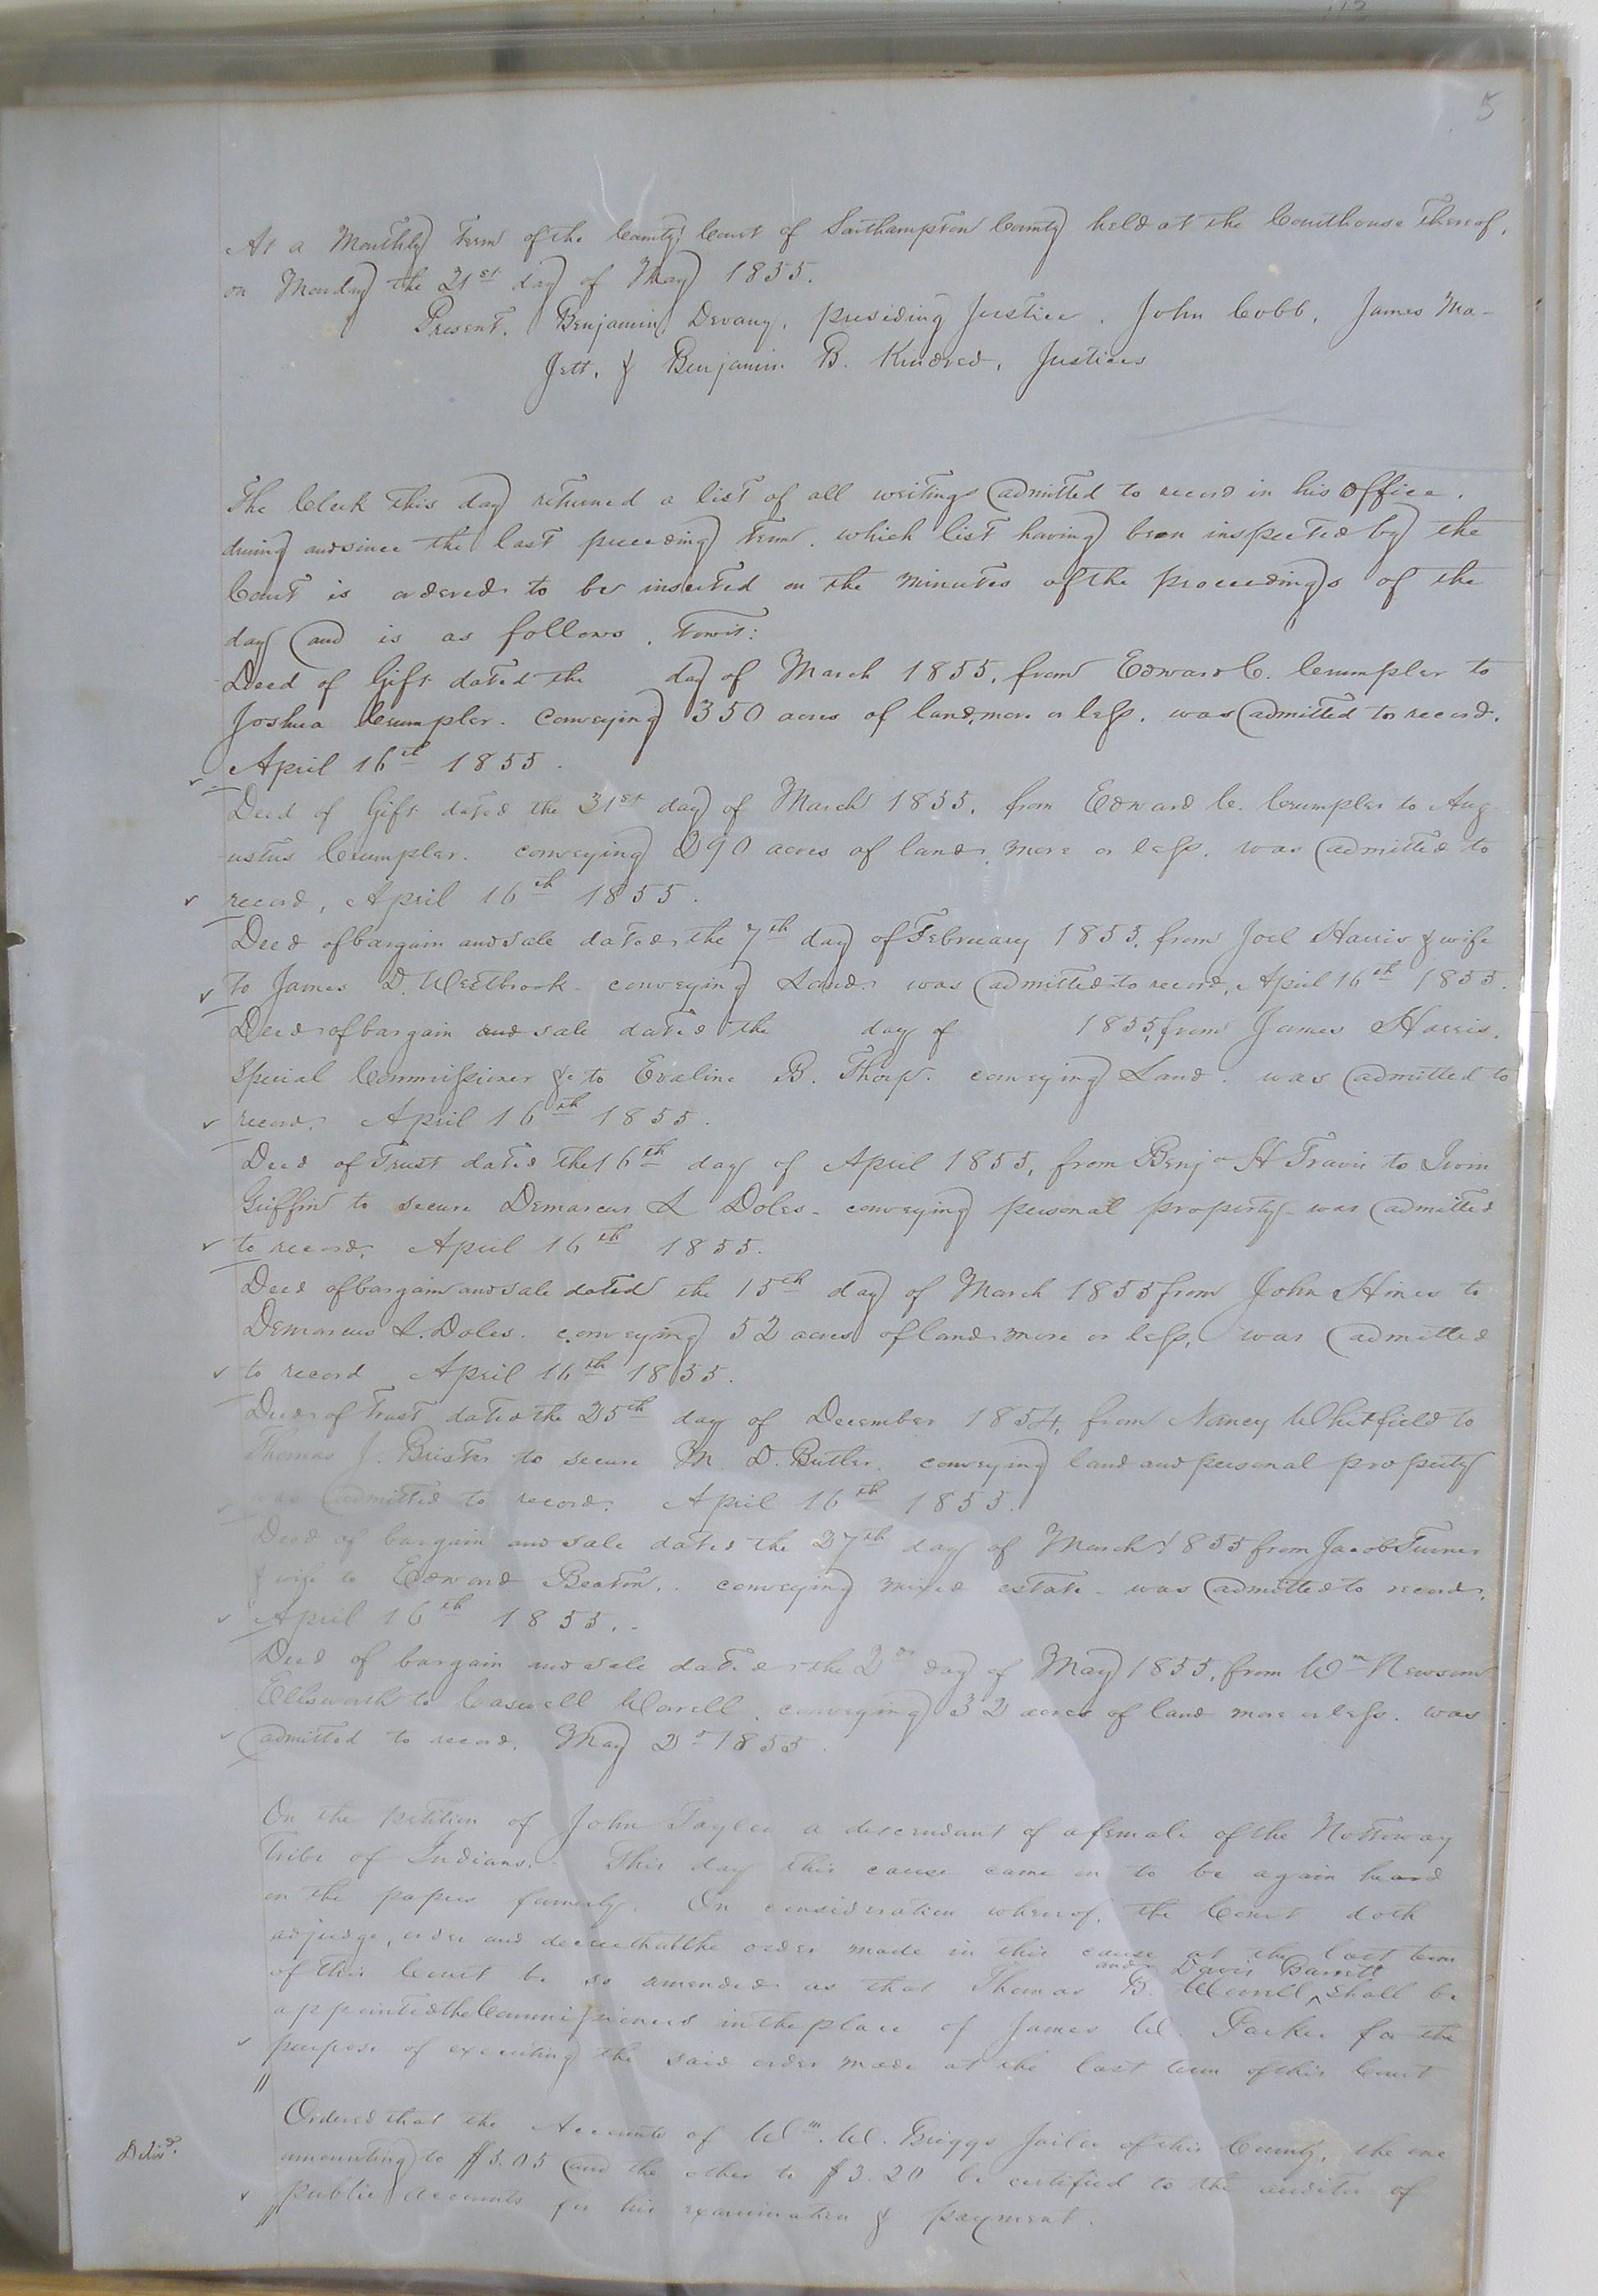 5
At a Monthly term of the County Court of Southampton County held at the Courthouse thereof,
on Monday the 21st day of May 1855.
Present. Benjamin Devany, presiding Justice. John Cobb, James Ma-
Jett, & Benjamin B. Kindred, Justices
The Clerk this day returned a list of all writings admitted to record in his office,
during and since the last preceding term, which list having been inspected by the
Court is ordered to be inserted on the minutes of the proceedings of the
day and is as follows, Towit:
Deed of Gift dated the day of March 1855, from Edward C. Crumpler to
Joshua Crumpler. Conveying 350 acres of land, more or less. was admitted to record.
April 16th 1855.
Deed of Gift dated the 31st day of March 1855, from Edward C. Crumpler to Aug-
ustus Crumpler. conveying 290 acres of land, more or less. was admitted to
record, April 16th 1855.
Deed of bargain and sale dated the 7th day of February 1855, from Joel Harris & wife
to James D. Westbrook. conveying Land. was admitted to record, April 16th 1855.
Deed of bargain and sale dated the day of 1855, from James Harris,
Special Commissioner &c to Evaline B. Thorp. conveying Land. was admitted to
record. April 16th 1855.
Deed of Trust dated the 16th day of April 1855, from Benja H Travis to Irvin
Griffin to secure Demarcus L Doles - conveying personal property - was admitted
to record. April 16th 1855.
Deed of bargain and sale dated the 15th day of March 1855 from John Hines to
Demarcus L. Doles. conveying 52 acres of land more or less, was admitted
to record April 16th 1855.
Deed of Trust dated the 25th day of December 1854, from Nancy Whitfield to
Thomas J. Brister to secure M. D. Butler. conveying land and personal property
was admitted to record. April 16th 1855.
Deed of bargain and sale dated the 27th day of March 1855 from Jacob Turner
& wife to Edward Beaton,. conveying mixed estate - was admitted to record.
April 16th 1855.
Deed of bargain and sale dated the 2d day of May 1855, from Wm Newsom
Ellsworth to Caswell Worrell. conveying 32 acres of land more or less. was
admitted to record. May 2d 1855.
On the petition of John Taylor a descendant of a female of the Nottoway
Tribe of Indians. This day this cause came on to be again heard
on the papers formerly. On consideration whereof, the Court doth
adjudge, order and decree that the order made in this cause at the last term
of this Court be so amended as that Thomas B. Worrell ^ and Davis Barrett shall be
appointed the Commissioners in the place of James W. Parker for the
purpose of executing the said order made at the last term of this Court
Ordered that the Accounts of Wm. W. Briggs Jailor of this County, the one
amounting to $5.05 and the other to $3.20 be certified to the auditor of
public accounts for his examination & payment.